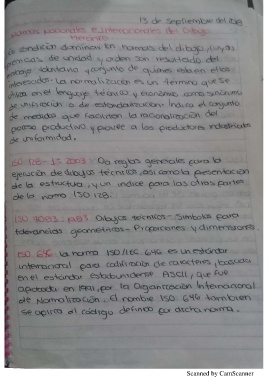 13 de Septiembre del
Normas Nacionales e Internacionales del Dibujo
condición dominan los normas del dibujo, cuyas
de unidad y orden son resultado del
voluntario conjunto de quienes estan en ellos
interesados. La normalización es un termino que se
en el lenguaje técnico y económico como sinónimo
de unificación o de estandarización. Indica el conjunto
de medidas que facilitan la racionalización del
proceso productivo y provee a los productores industriales
de uniformidad.
ISO 128-1: 2003: Da reglas generales para la
ejecución de dibujos técnicos, así como la presentación
de la estructura, y un indice para las otras partes
de la norma ISO 128.
ISO 7083: 1983 Dibujos técnicos- Simbolos para
tolerancias geometricas- Proporciones y dimensiones.
ISO 646: la norma ISO/IEC 646 es un estándar
internacional para codificación de caracteres, basada
en el estandar estadounidense ASCII, que fue
aprobada en por la Organización Internacional
de Normalización. El nombre ISO 646 tambien
se aplica al código definido por dicha norma.
Scanned by CamScanner